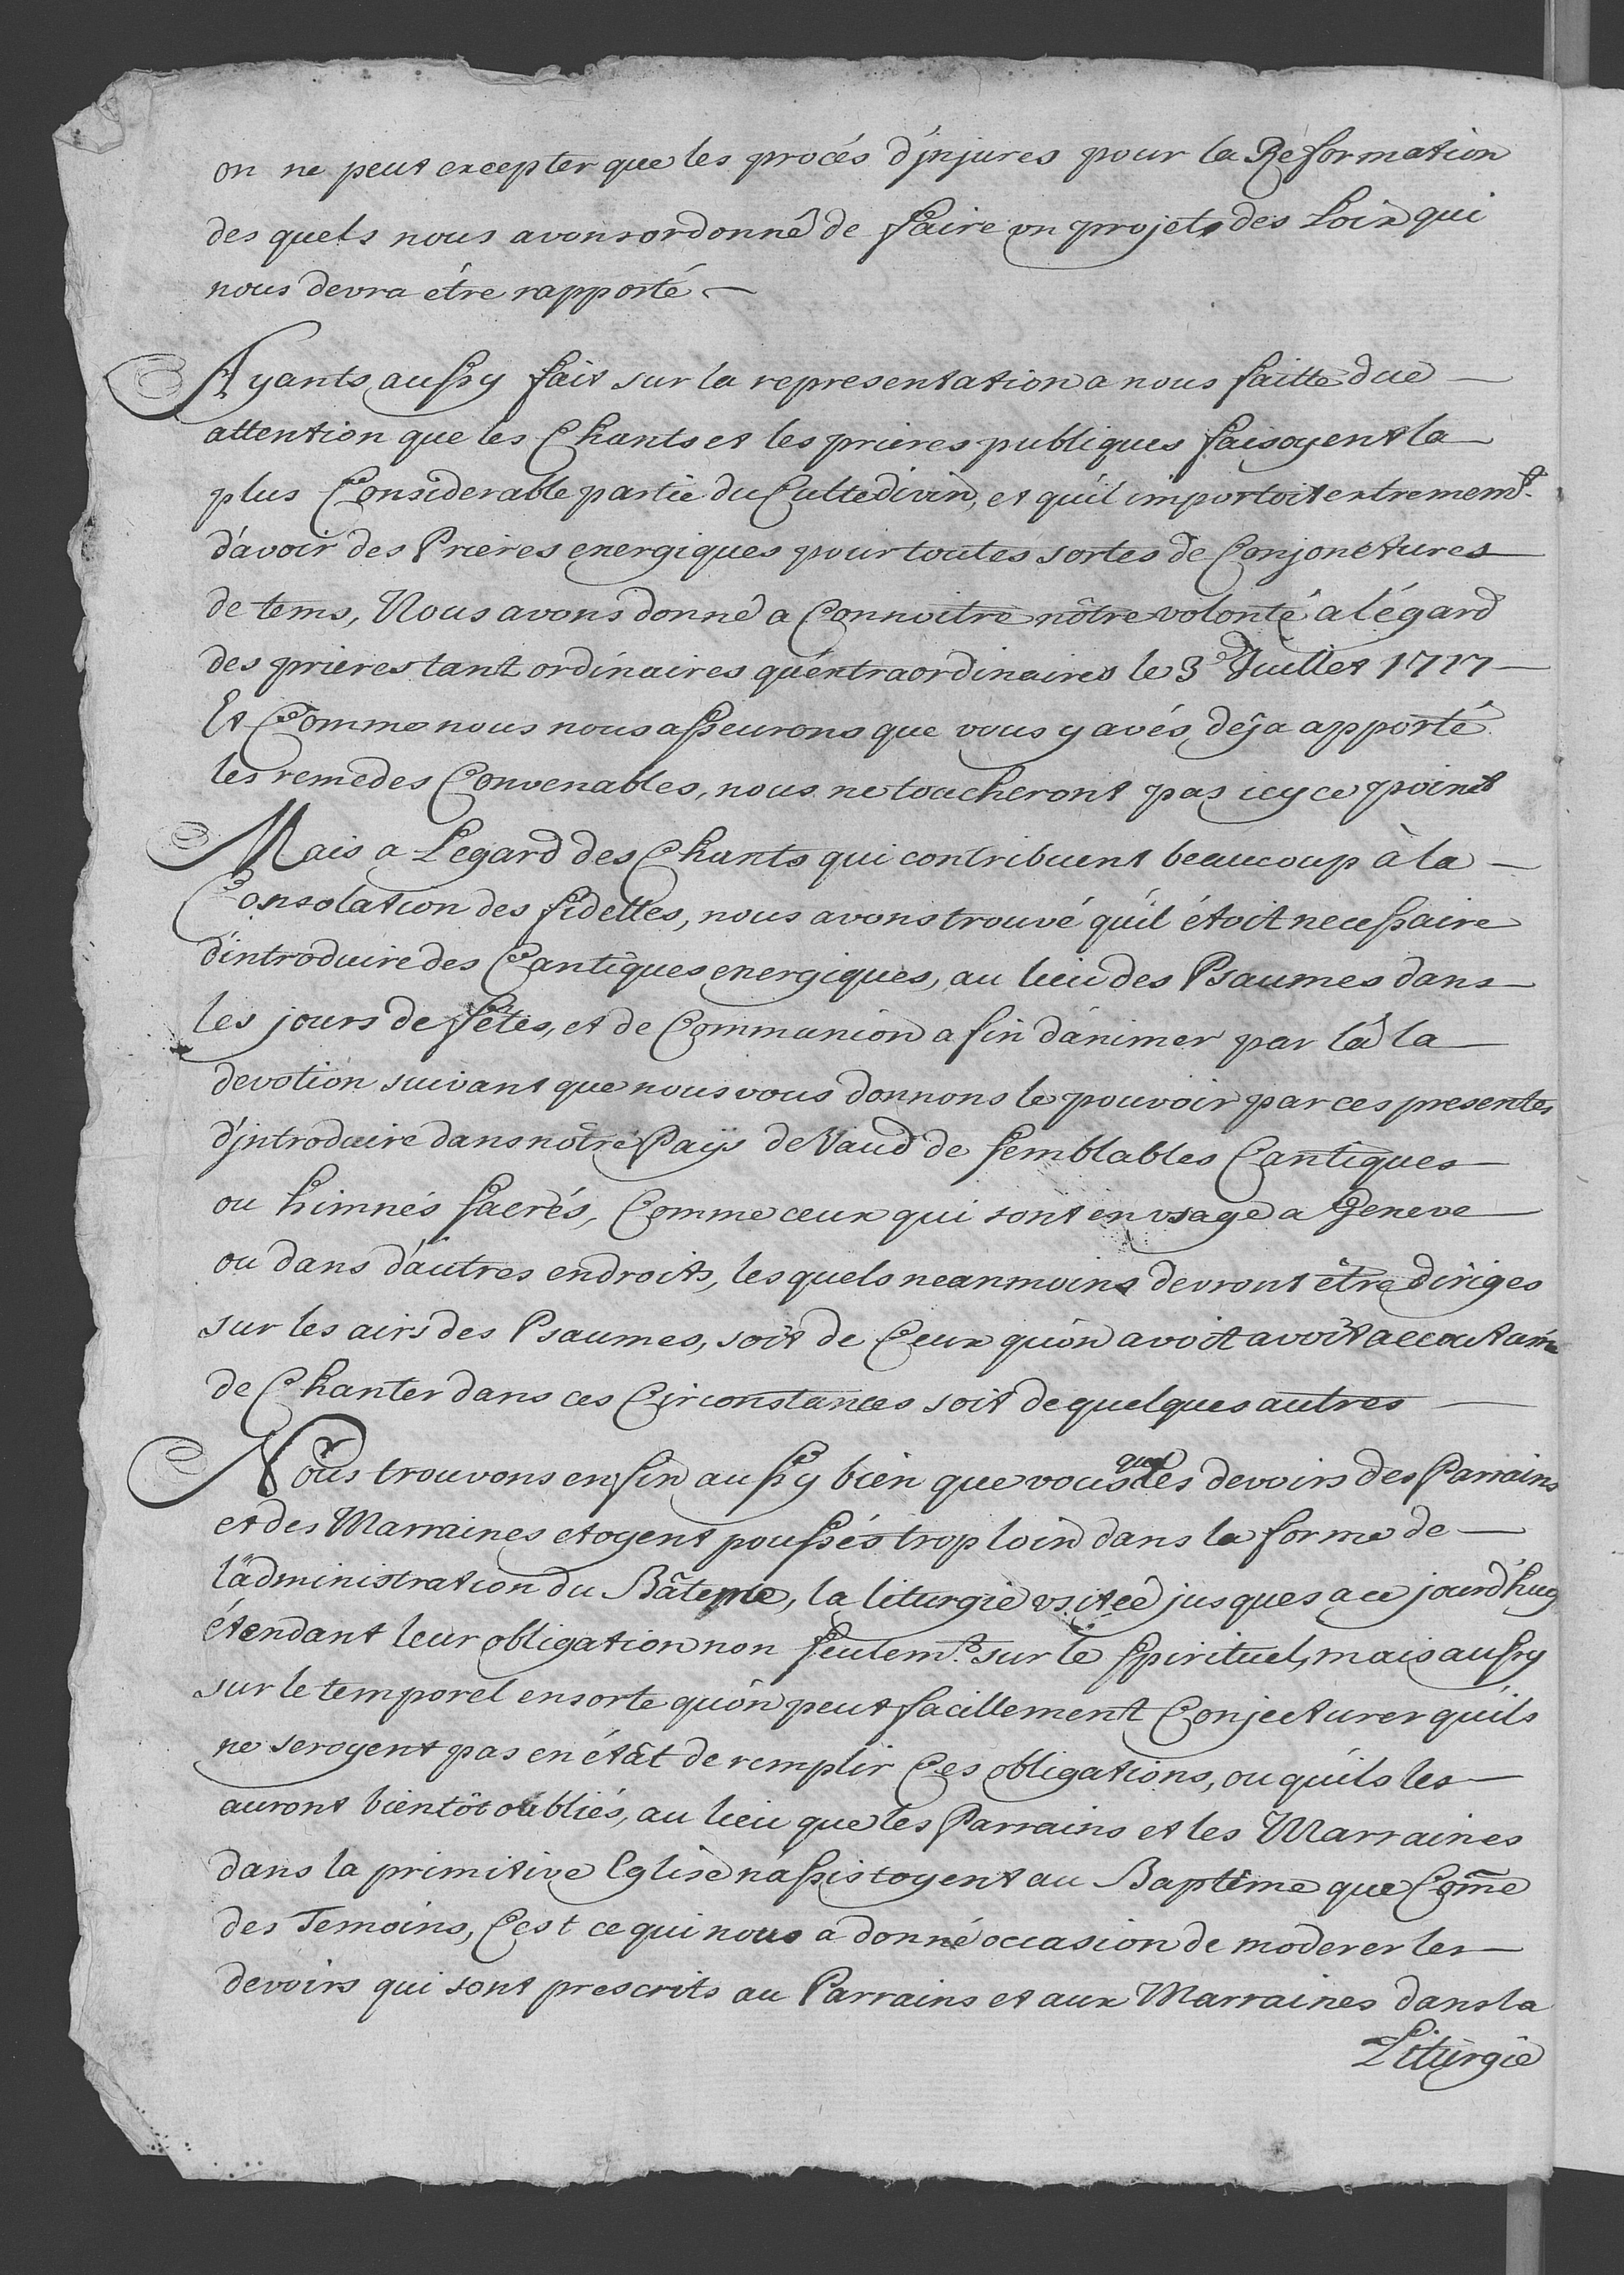 on ne peut excepter que les procés d'jnjures pour la Reformation
des quels nous avons ordonné de faire vn projets des Loix qui
nous devra étre rapporté
Ayants aussy fait sur la representation a nous faitte düe
attention que les Chants et les prieres publiques faisoyent la
plus Considerable partie du Culte divin, et qu'il importoit extremem.t
d'avoir des Prieres energiques pour toutes sortes de Conjonctures
de tems, Nous avons donné a Connoitre nôtre volonté a l'égard
des prieres tant ordinaires qu'extraordinaires le 3e Juillet 1717
Et Comme nous nous asseurons que vous y avés déja apporté
les remedes Convenables, nous ne toucheront pas icy ce point
Mais a Legard des Chants qui contribuent beaucoup à la
Consolation des fidelles, nous avons trouvé qu'il étoit necessaire
d'introduire des Cantiques energiques, au lieu des Psaumes dans
les jours de fêtes, et de Communion a fin d'animer par là la
devotion suivant que nous vous donnons le pouvoir par ces presentes
d'jntroduire dans nôtre Païs de Vaud de semblables Cantiques
ou himnes sacrés, Comme ceux qui sont en vsage a Geneve
ou dans d'autres endroits, les quels neanmoins devront être diriges
sur les airs des Psaumes, soit de Ceux qu'on avoit avoit accoutumé
de Chanter dans ces Circonstances soit de quelques autres
Nous trouvons en fin aussy bien que vous que les devoirs des Parrains
et des Marraines etoyent poussés trop loin dans la forme de
l'administration du Bâteme, la liturgie vsitée jusques a ce jourd'huy
étendant leur obligation non seulem.t sur le spirituel, mais aussy
sur le temporel ensorte qu'on peut facillement Conjecturer qu'ils
ne seroyent pas en état de remplir Ces obligations, ou qu'ils les
auront bientôt oubliés, au lieu que les Parrains et les Marraines
dans la primitive Eglise n'assistoyent au Baptême que Come
des Temoins, C'est ce qui nous a donné occasion de moderer les
devoirs qui sont prescrits au Parrains et aux Marraines dans la
Liturgie